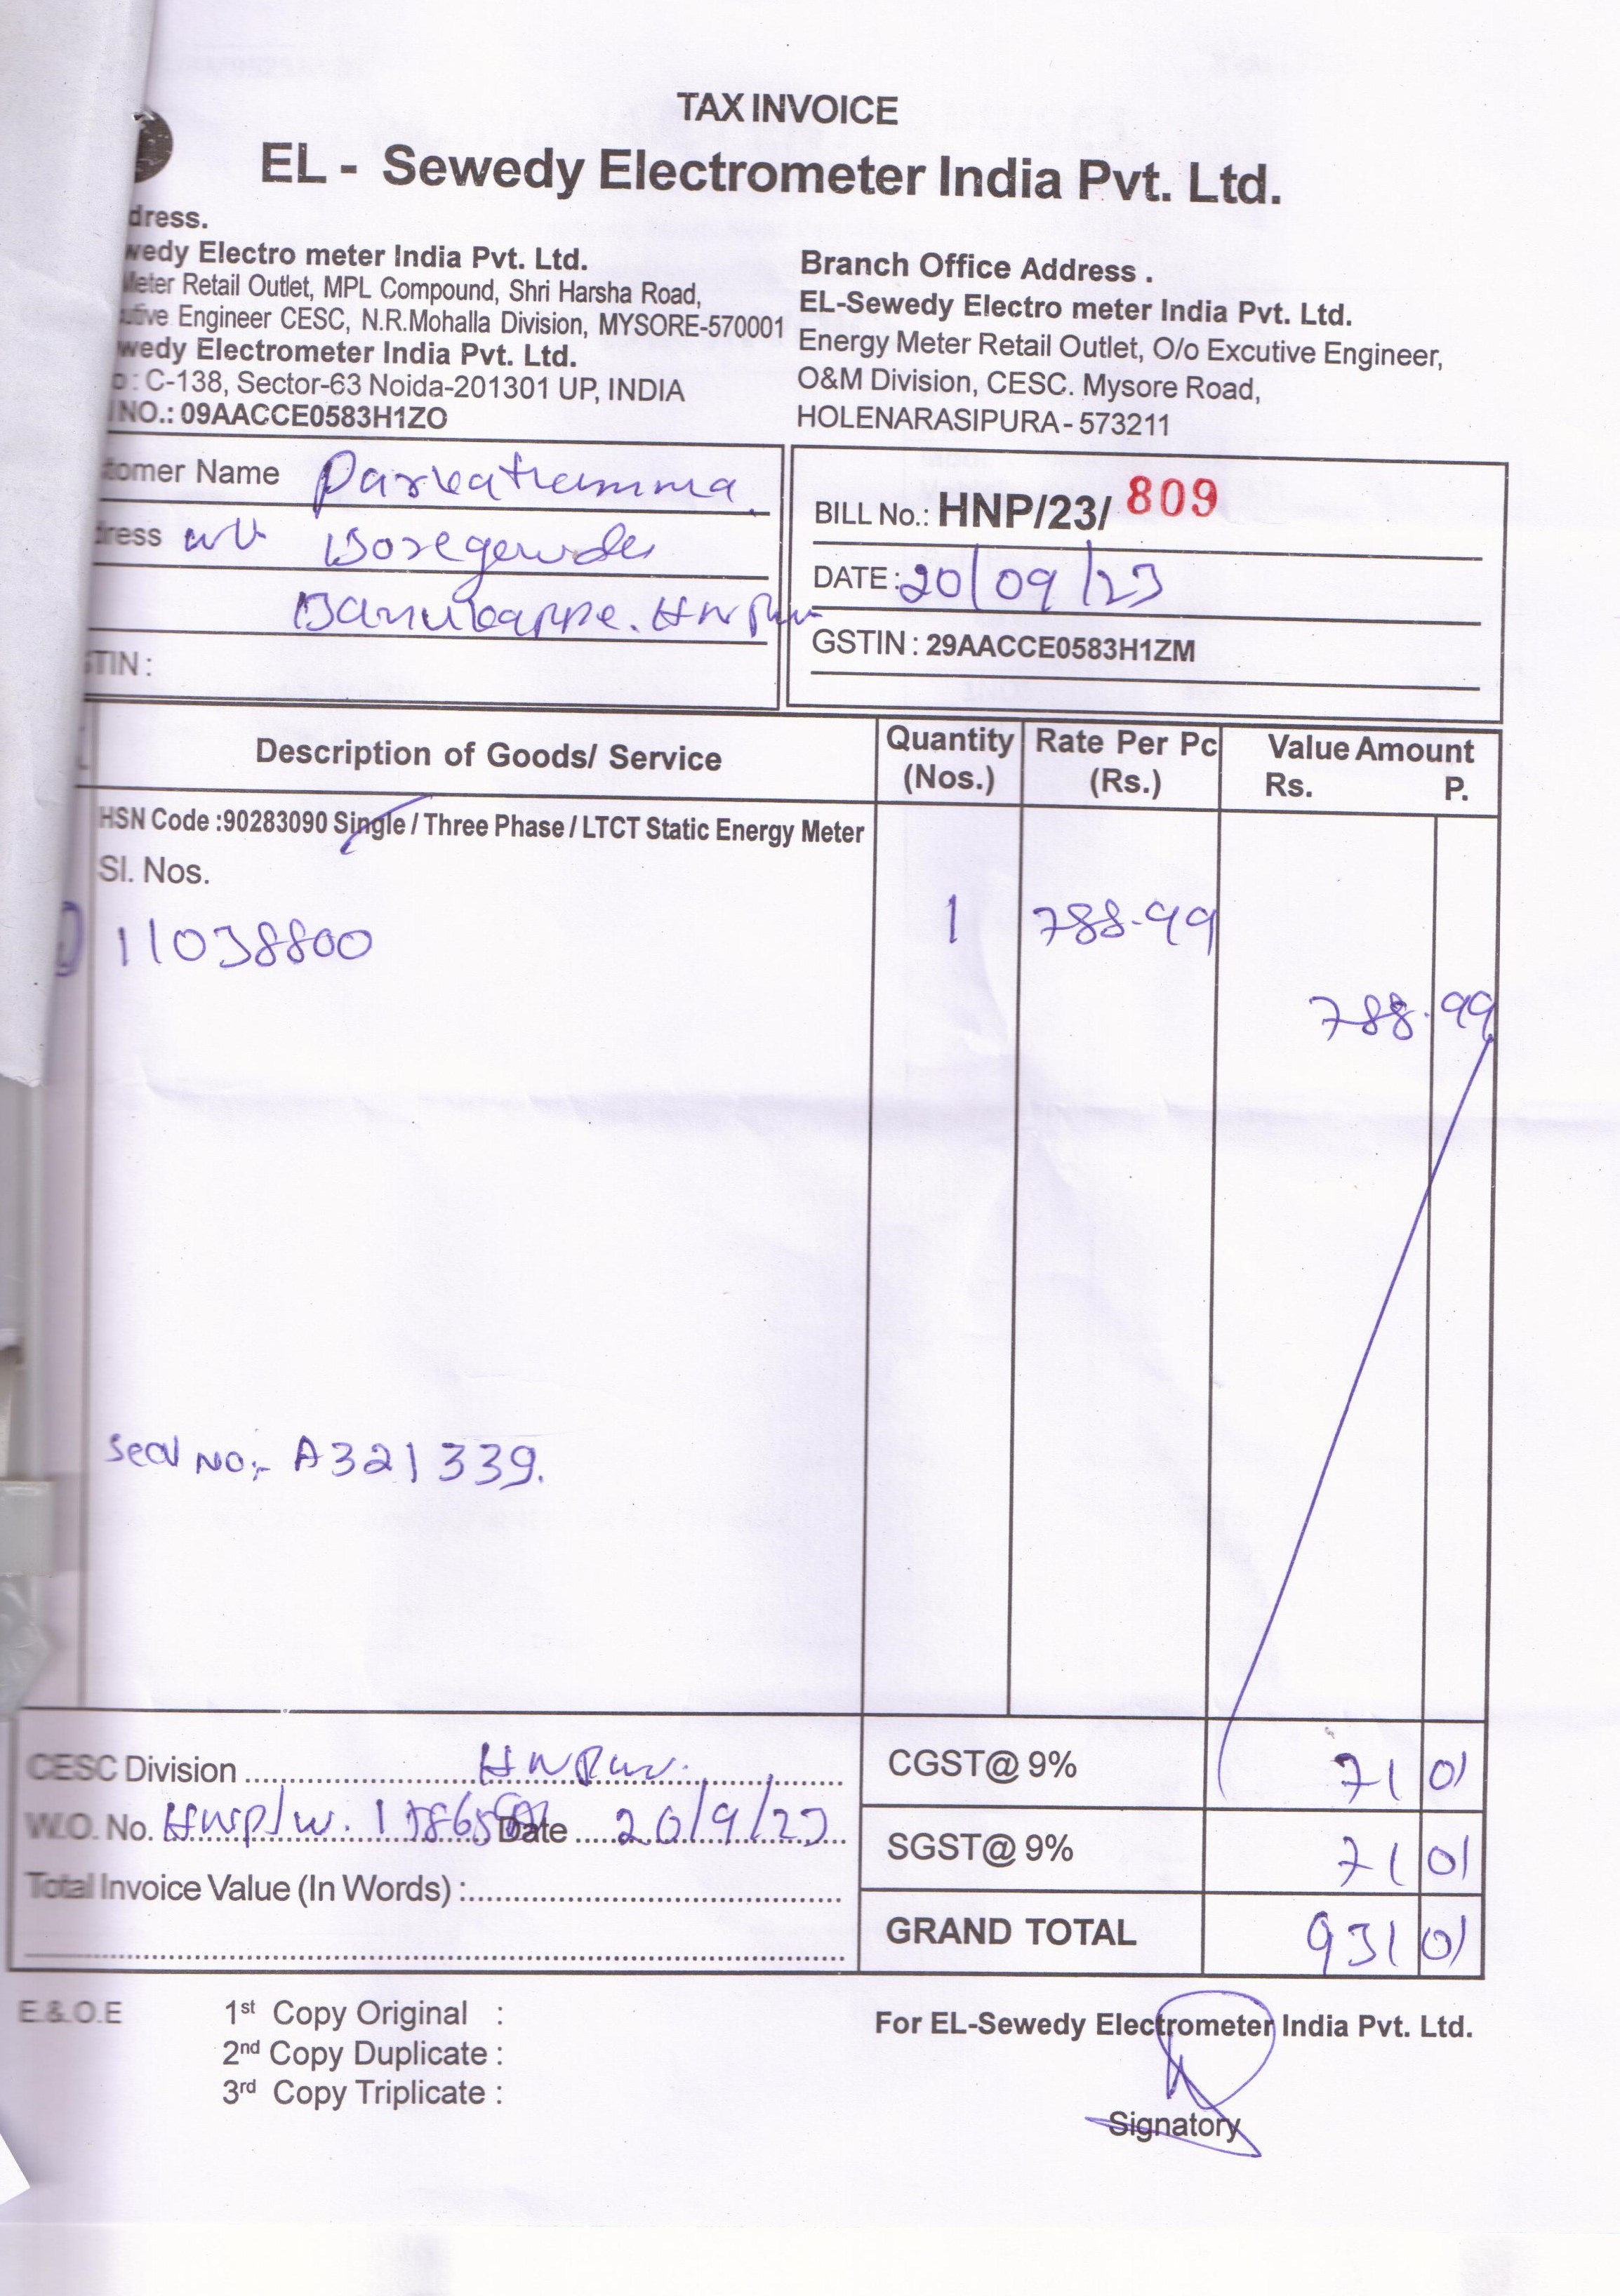 TAX INVOICE
EL - Sewedy Electrometer India Pvt. Ltd.
dress.
wedy Electro meter India Pvt. Ltd.
Meter Retail Outlet, MPL Compound, Shri Harsha Road,
utive Engineer CESC, N.R.Mohalla Division, MYSORE-570001
wedy Electrometer India Pvt. Ltd.
: C-138, Sector-63 Noida-201301 UP, INDIA
NO.: 09AACCE0583H1ZO
Branch Office Address .
EL-Sewedy Electro meter India Pvt. Ltd.
Energy Meter Retail Outlet, O/o Excutive Engineer,
O&M Division, CESC. Mysore Road,
HOLENARASIPURA - 573211
tomer Name Parvathamma
dress Boregowda
TIN :
BILL No.: HNP/23/ 809
DATE : 20/09/23
GSTIN : 29AACCE0583H1ZM
Description of Goods/ Service Quantity (Nos.) Rate Per Pc (Rs.) Value Amount Rs. P.
HSN Code :90283090 Single / Three Phase / LTCT Static Energy Meter
Sl. Nos.
11038800 1 788.99
788.99
Seal No:- A321339.
CESC Division
W.O. No. Date 20/9/23
Total Invoice Value (In Words) :
CGST@ 9% 71 01
SGST@ 9% 71 01
GRAND TOTAL 931 01
E.&.O.E
1st Copy Original :
2nd Copy Duplicate :
3rd Copy Triplicate :
For EL-Sewedy Electrometer India Pvt. Ltd.
Signatory